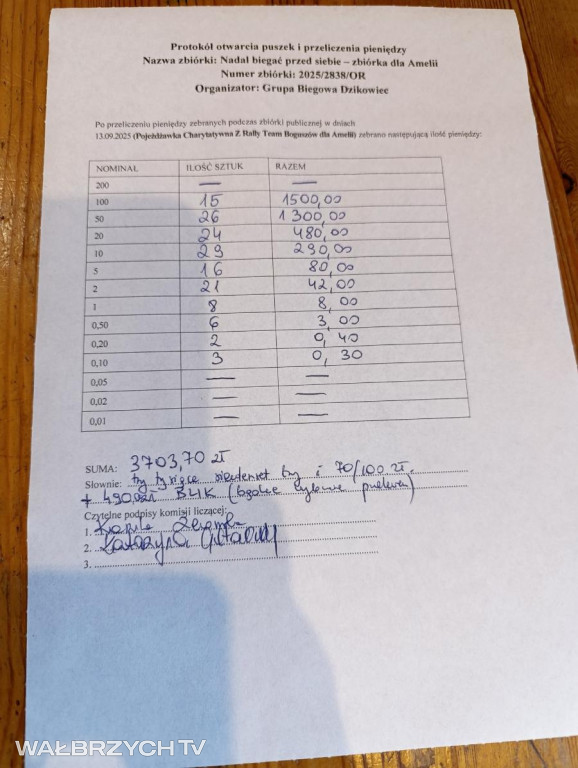 Protokół otwarcia puszek i przeliczenia pieniędzy
Nazwa zbiórki: Nadal biegać przed siebie – zbiórka dla Amelii
Numer zbiórki: 2025/2838/OR
Organizator: Grupa Biegowa Dzikowiec
Po przeliczeniu pieniędzy zebranych podczas zbiórki publicznej w dniach
13.09.2025 (Pojeżdżawka Charytatywna Z Rally Team Boguszów dla Amelii) zebrano następującą ilość pieniędzy:
NOMINAŁ ILOŚĆ SZTUK RAZEM
200 — —
100 15 1500,00
50 26 1300,00
20 24 480,00
10 29 290,00
5 16 80,00
2 21 42,00
1 8 8,00
0,50 6 3,00
0,20 2 0,40
0,10 3 0,30
0,05 — —
0,02 — —
0,01 — —
SUMA: 3703,70 zł
Słownie: trzy tysiące siedemset trzy i 70/100 zł.
+ 490,00zł BLIK
Czytelne podpisy komisji liczącej:
1.
2. Katarzyna
3.
WAŁBRZYCH TV